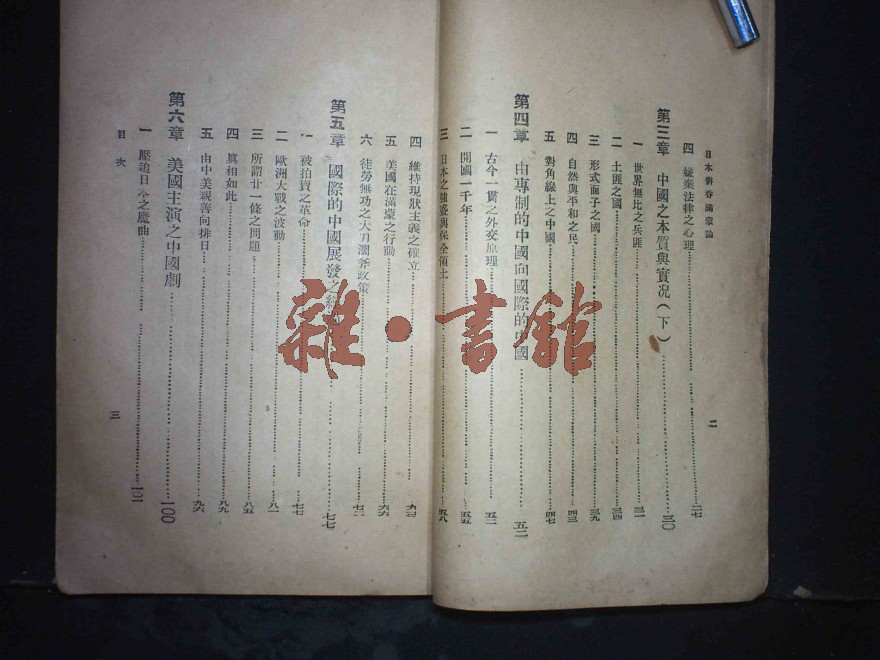 日本併吞滿蒙論
四 嫌棄法律之心理 二七
第三章 中國之本質與實況(下) 三〇
一 世界無比之兵匪 三一
二 土匪之國 三四
三 形式面子之國 三九
四 自然與平和之民 四三
五 對角線上之中國 四七
第四章 由專制的中國向國際的中國 五二
一 古今一貫之外交原理 五二
二 開國一千年 五五
三 日本之強盛與保全領土 五八
二
四 維持現狀主義之確立
五 美國在滿蒙之行動 六六
六 徒勞無功之大刀濶斧政策 七二
第五章 國際的中國展發之經 七七
一 被拍賣之革命 七七
二 歐洲大戰之波動 八一
三 所謂廿一條之問題 八五
四 眞相如此 八九
五 由中美親善向排日 九六
第六章 美國主演之中國劇 一〇〇
一 壓迫日本之魔曲 一〇一
目次
三
雜·書館